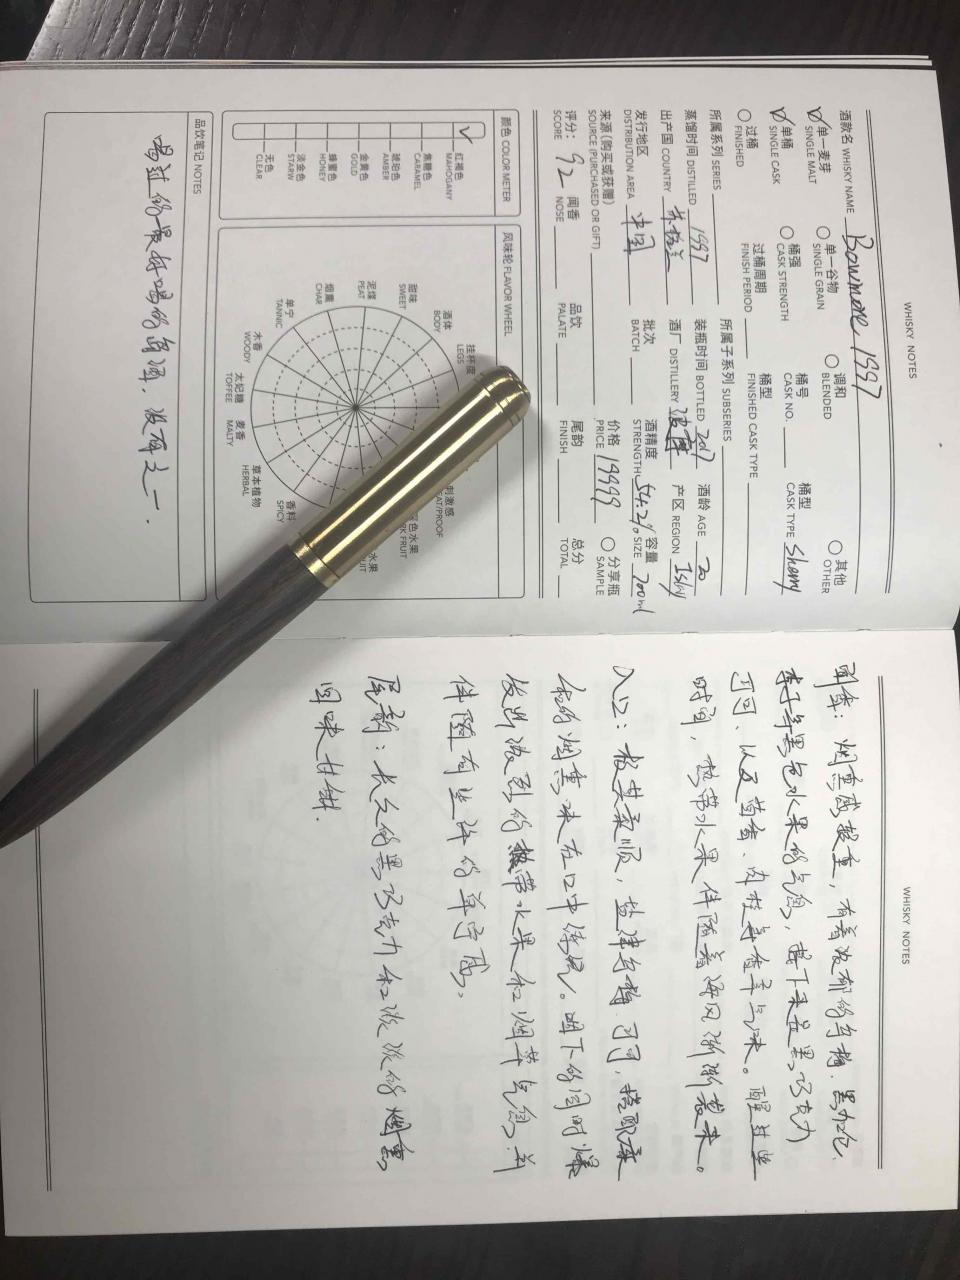 WHISKY NOTES
酒款名 WHISKY NAME Bowmore 1997
单一麦芽 SINGLE MALT 单一谷物 SINGLE GRAIN 调和 BLENDED 其他 OTHER
单桶 SINGLE CASK 桶强 CASK STRENGTH 桶号 CASK NO. 桶型 CASK TYPE Sherry
过桶 FINISHED 过桶周期 FINISH PERIOD 桶型 FINISHED CASK TYPE
所属系列 SERIES 所属子系列 SUBSERIES
蒸馏时间 DISTILLED 1997 装瓶时间 BOTTLED 2017 酒龄 AGE 20
出产国 COUNTRY 苏格兰 酒厂 DISTILLERY 波摩 产区 REGION Islay
发行地区 DISTRIBUTION AREA 中国 批次 BATCH 酒精度 STRENGTH 54.2% 容量 SIZE 700ml
来源(购买或获赠) SOURCE (PURCHASED OR GIFT) 价格 PRICE 19999 分享瓶 SAMPLE
评分: SCORE 92 闻香 NOSE 品饮 PALATE 尾韵 FINISH 总分 TOTAL
颜色 COLOR METER
红褐色 MAHOGANY
焦糖色 CARAMEL
琥珀色 AMBER
金黄色 GOLD
蜂蜜色 HONEY
淡金色 STARW
无色 CLEAR
风味轮 FLAVOR WHEEL
挂杯度 LEGS
酒体 BODY
甜味 SWEET
泥煤 PEAT
烟熏 CHAR
单宁 TANNIC
木香 WOODY
太妃糖 TOFFEE
麦香 MALTY
草本植物 HERBAL
香料 SPICY
水果
色水果
刺激感
品饮笔记 NOTES
喝过的最好喝的烈酒,没有之一.
WHISKY NOTES
闻香:烟熏感较重,有着浓郁的乌梅、黑加仑、
李子等黑色水果的气息,接下来是黑巧克力
可可、以及茴香、肉桂等香辛气味。醒过些
时间,热带水果伴随着海风渐渐袭来。
入口:极其柔顺,盐津乌梅、可可,搭配柔
和的烟熏味在口中传展。咽下的同时爆
发出浓烈的热带水果和烟草气息,并
伴随有些许的单宁感。
尾韵:长久的黑巧克力和淡淡的烟熏
回味甘甜.